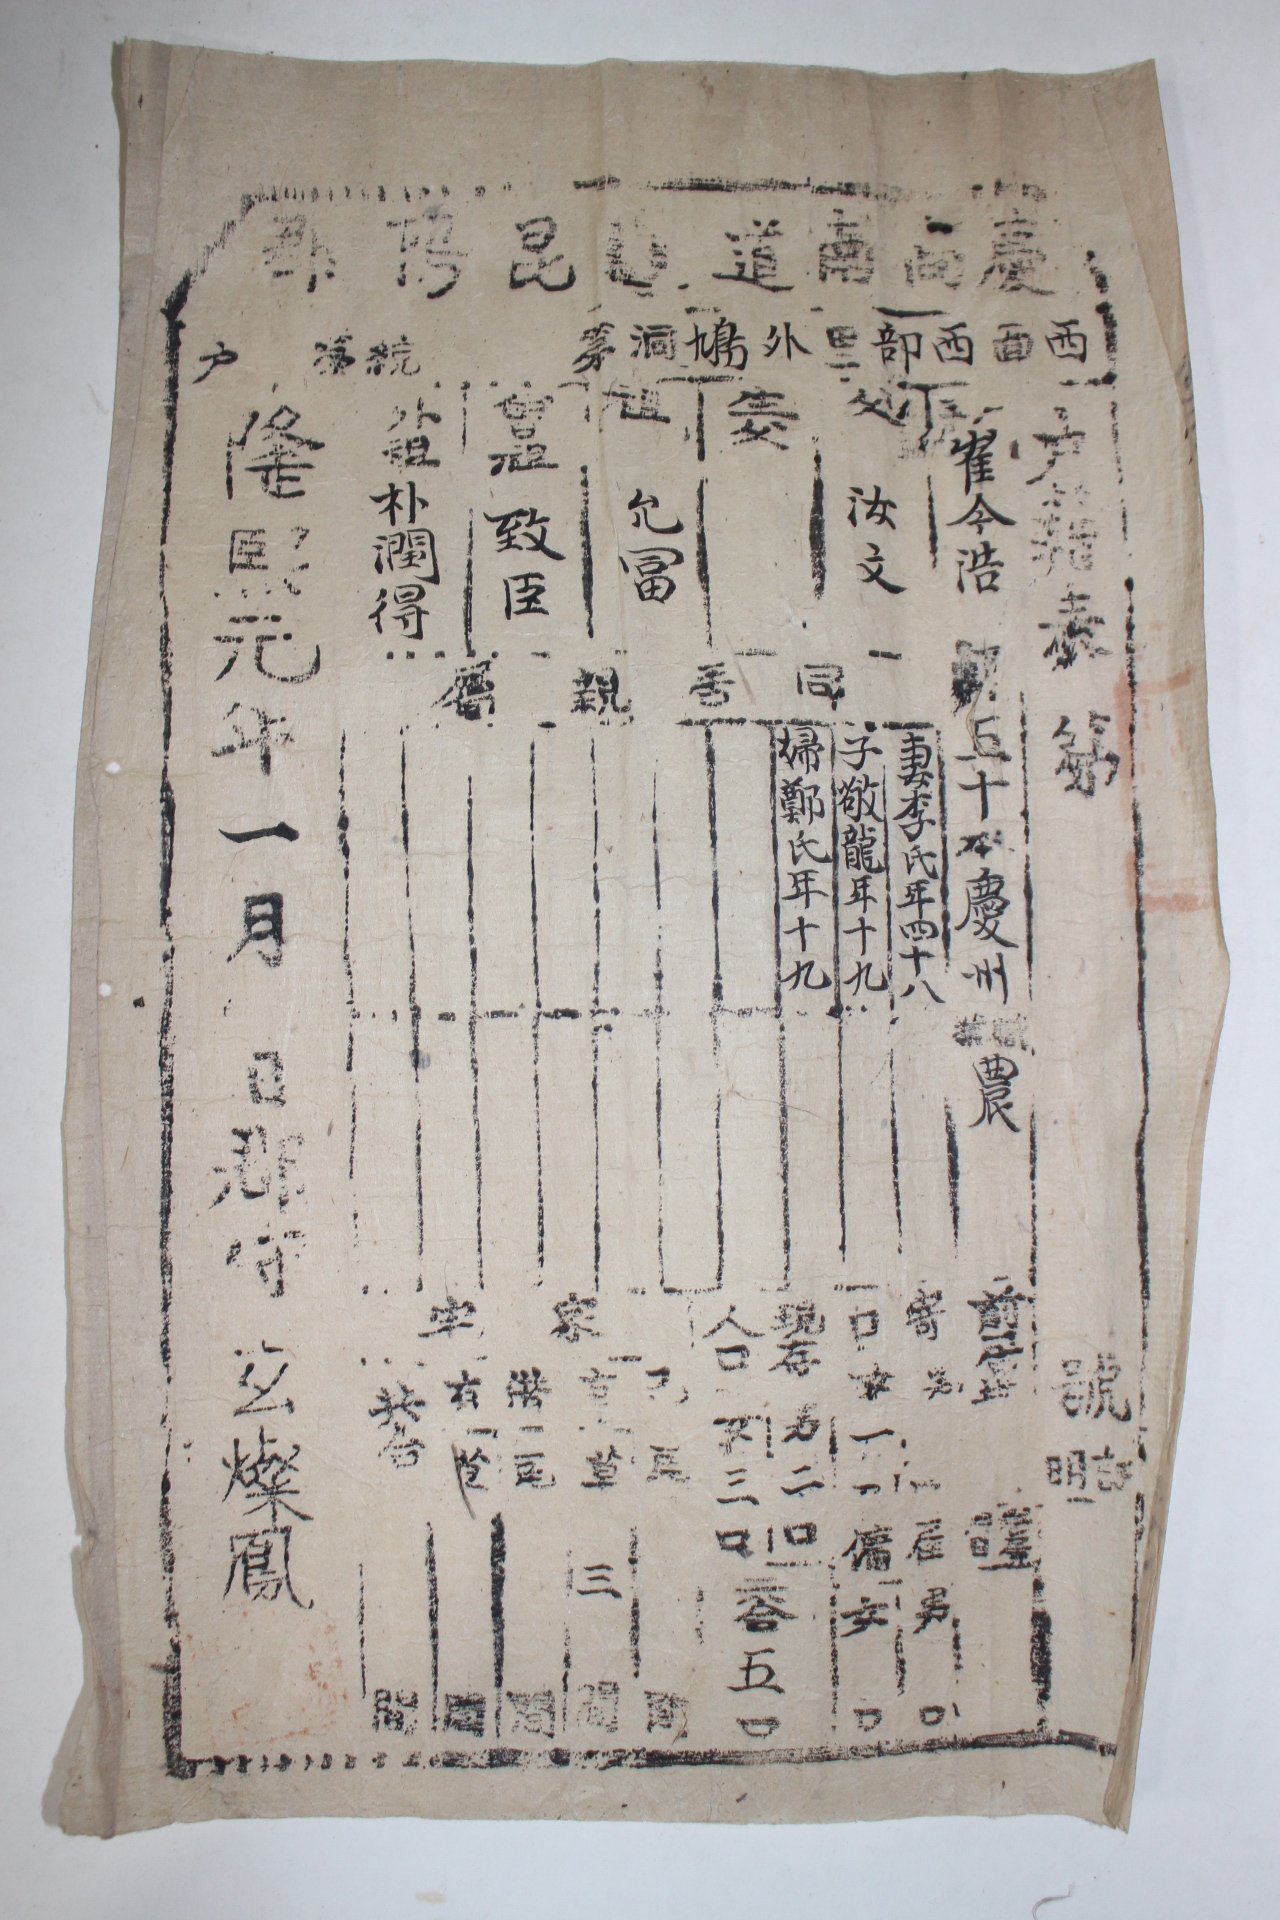 慶尙南道 昆陽郡
西面西部里外鳩洞第 統第 戶
戶籍表 第 號
戶主 崔令浩 年五十 本慶州 職業 農
前居地
父 汝文
妻
祖 允冨
曾祖 致臣
外祖 朴潤得
同居親屬
妻李氏年四十八
子敬龍年十九
婦鄭氏年十九
寄口 男 口 女 口
雇男 口
傭女 口
現存人口 男二口 女三口 合五口
家宅
己有 草 三 間
借有
共合 間
隆熙元年一月 日郡守 玄燦鳳